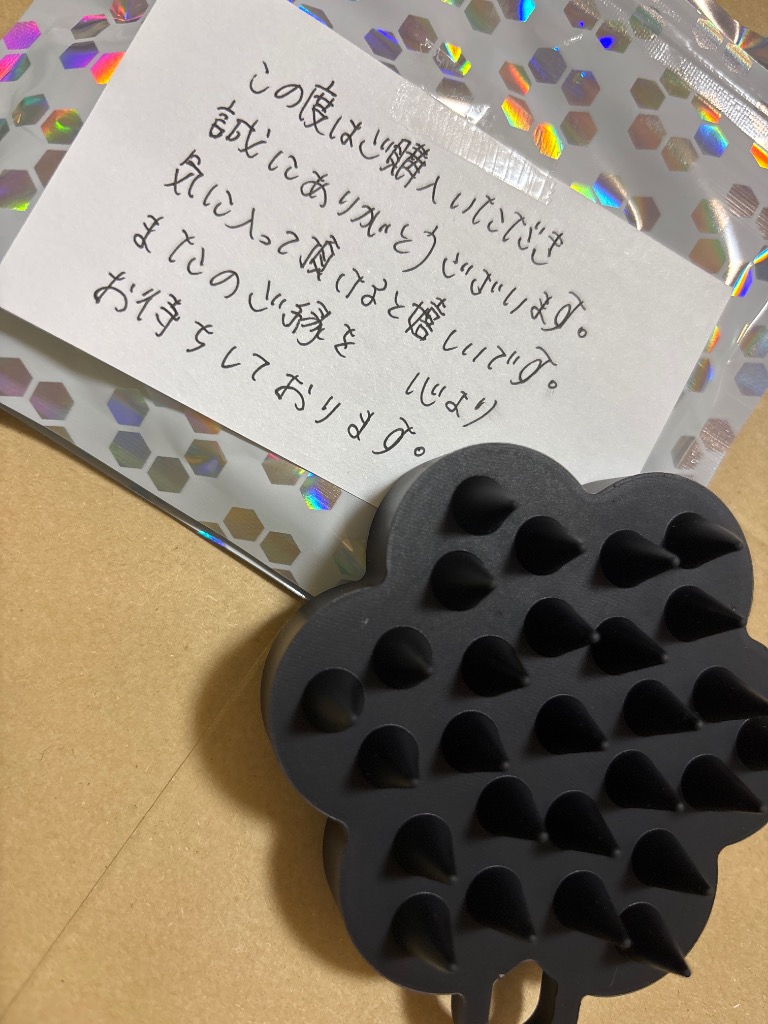 この度はご購入いただき
誠にありがとうございます。
気に入って頂けると嬉しいです。
またのご縁を 心より
お待ちしております。